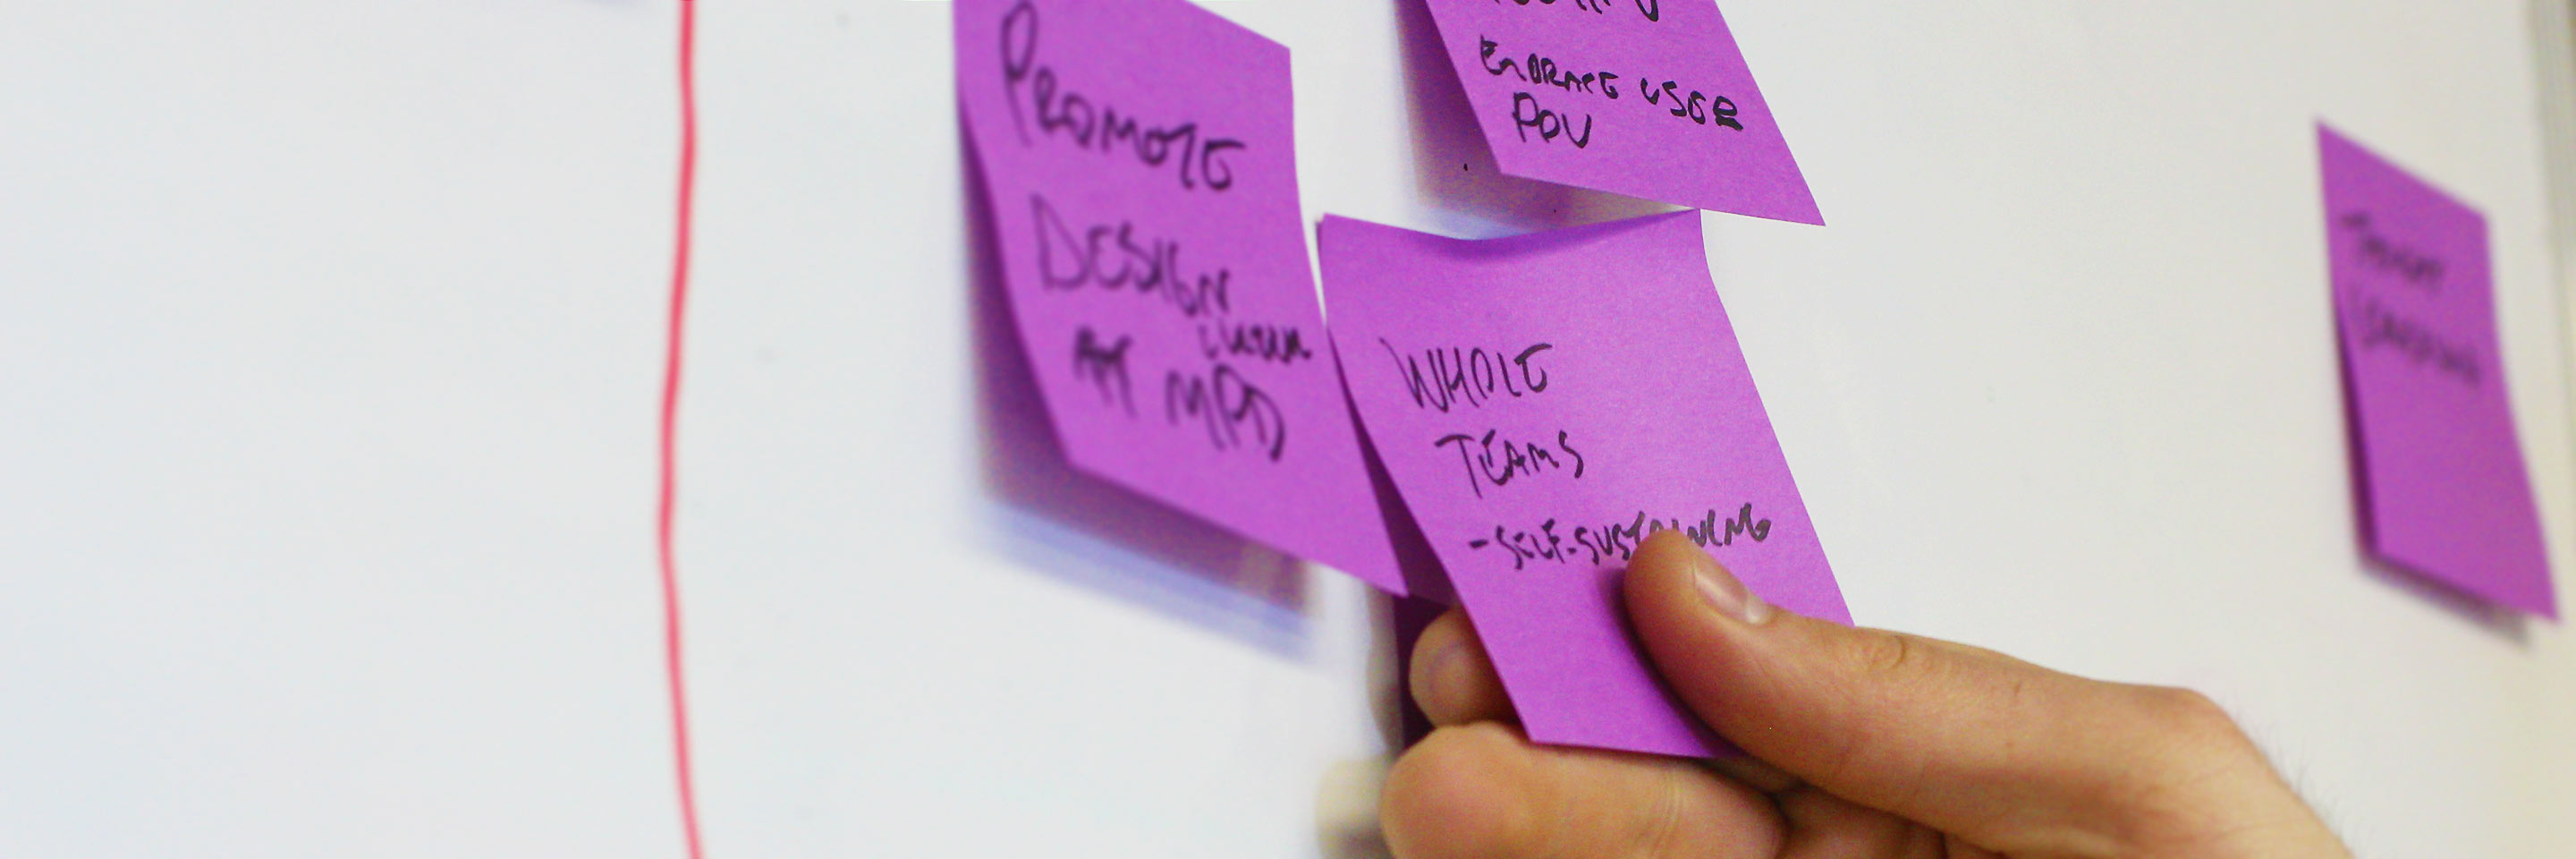 PROMOTE
DESIGN
AT MPD
EMBRACE USER
POV
WHOLE
TEAMS
- SELF-SUSTAINING